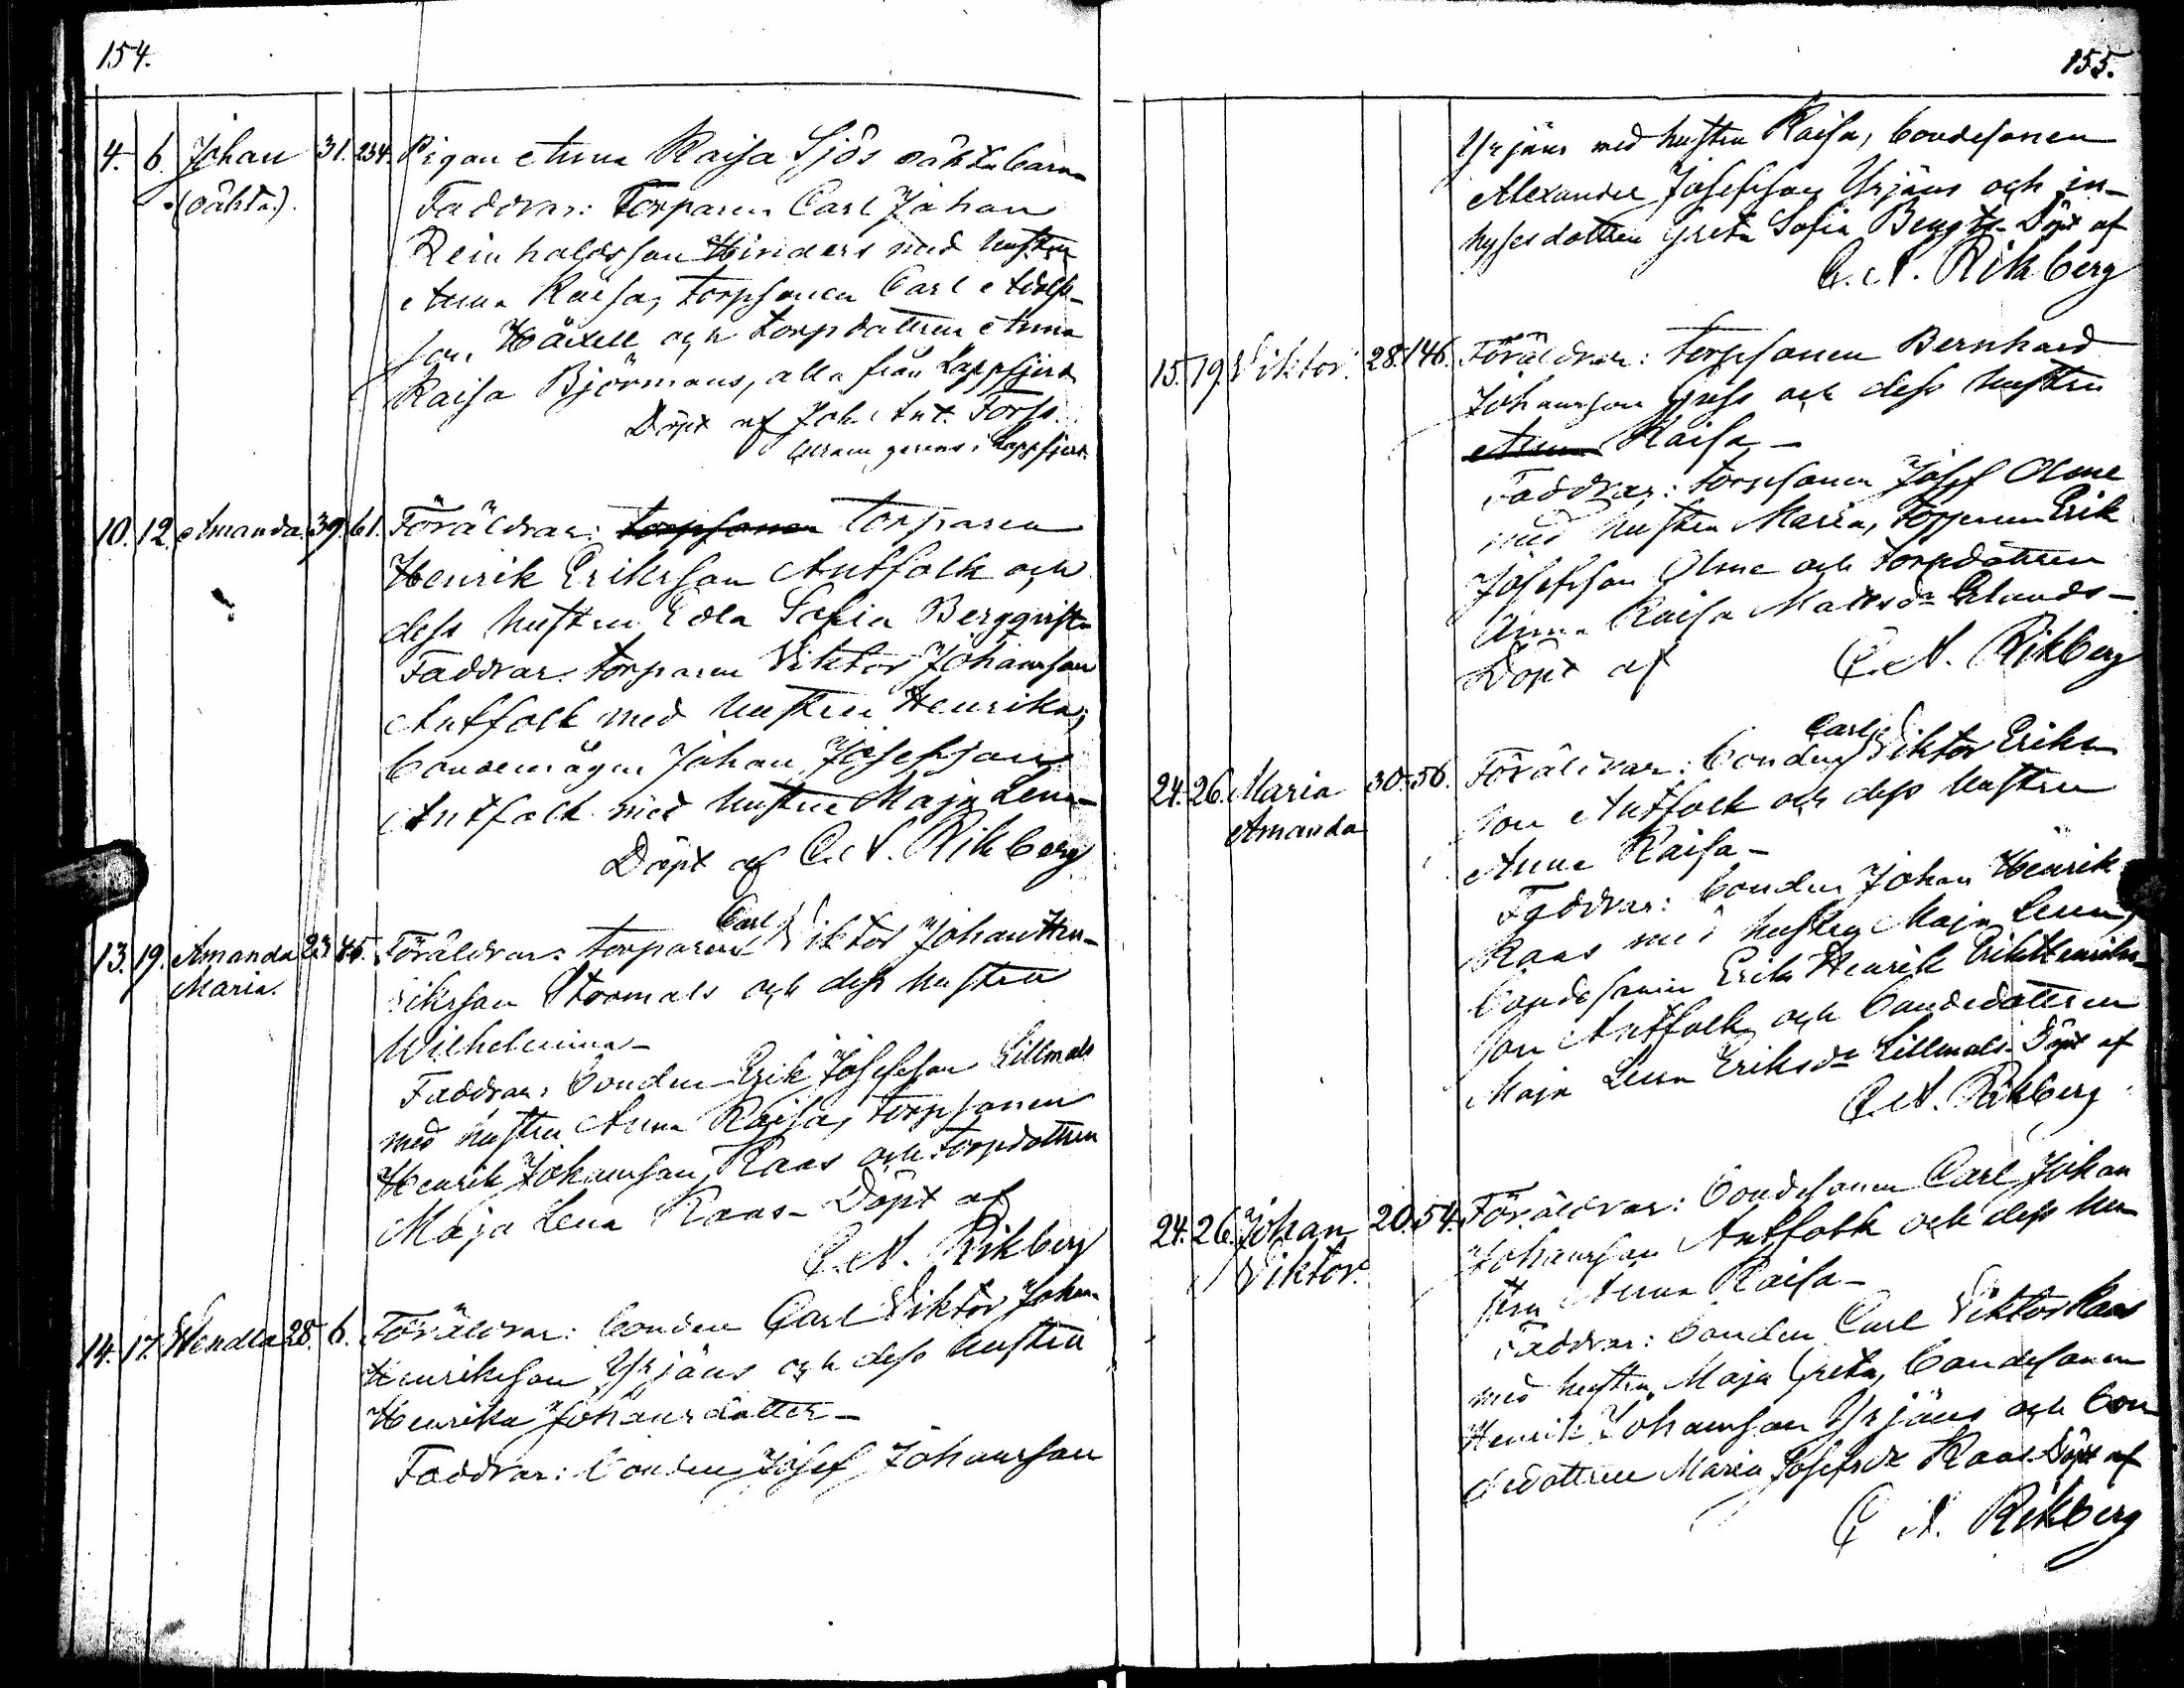 154.
4. 6. Johan 31. 254. Pigan Anna Kaisa Sjös oäkta barn
(oäkta). Faddrar: Torparen Carl Johan
Reinholdsson Hinders med hustru
Anna Kaisa, torpsonen Carl Adolfs-
son Häxell och torpdottren Anna
Kaisa Björmans, alla från Lappfjerd
Döpt af Joh. Ant. Forss.
i Lappfjerd.
10. 12. Amanda. 39. 61. Föräldrar: torpsonen torparen
Henrik Eriksson Antfolk och
dess hustru Edla Sofia Bergqvist
Faddrar: torparen Viktor Johansson
Antfolk med hustru Henrika,
bondemågen Johan Josefsson
Antfolk med hustru Maja Lena
Döpt af C. A. Rikberg
13. 19. Amanda 23. 45. Föräldrar: torparen Carl Viktor Johan Hen-
Maria. riksson Stormals och dess hustru
Wilhelmina-
Faddrar: bonden Erik Josefsson Lillmals
med hustru Anna Kaisa, torpsonen
Henrik Johansson Kaas och torpdottren
Maja Lena Kaas- Döpt af
C. A. Rikberg
14. 17. Wendla 28. 6. Föräldrar: bonden Carl Viktor Johan
Henriksson Yrjäns och dess hustru
Henrika Johansdotter-
Faddrar: bonden Josef Johansson
155.
Yrjäns med hustru Kaisa, bondesonen
Alexander Josefsson Yrjäns och in-
hysesdottren Greta Sofia Bengts- Döpt af
C. A. Rikberg
15. 19. Viktor. 28. 146. Föräldrar: torpsonen Bernhard
Johansson och dess hustru
Anna Kaisa-
Faddrar: torpsonen Josef Olme
med hustru Maria, torpsonen Erik
Josefsson Olme och torpdottren
Anna Kaisa Matsdr
Döpt af C. A. Rikberg
24. 26. Maria 30. 56. Föräldrar: bonden Carl Viktor Eriks-
Amanda son Antfolk och dess hustru
Anna Kaisa-
Faddrar: bonden Johan Henrik
Kaas med hustru Maja Lena,
bondesonen Erik Henrik Erik Henriks-
son Antfolk och bondedottren
Maja Lena Eriksdr Lillmals- Döpt af
C. A. Rikberg
24. 26. Johan 20. 54. Föräldrar: bondesonen Carl Johan
Viktor. Johansson Antfolk och dess hu-
stru Anna Kaisa-
Faddrar: bonden Carl Viktor Kaas
med hustru Maja Greta, bondesonen
Henrik Johansson Yrjäns och bon-
dedottren Maria Josefsdr Kaas. Döpt af
C A. Rikberg